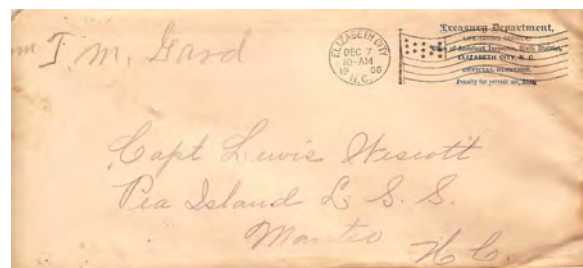 T. M. Gard
ELIZABETH CITY
DEC 7
10-AM
19 06
N.C.
Treasury Department,
LIFE-SAVING SERVICE,
of Assistant Inspector, Sixth District,
ELIZABETH CITY, N. C.
OFFICIAL BUSINESS.
Penalty for private use, $300.
Capt Lewis Wescott
Pea Island L. S. S.
Manteo
N. C.